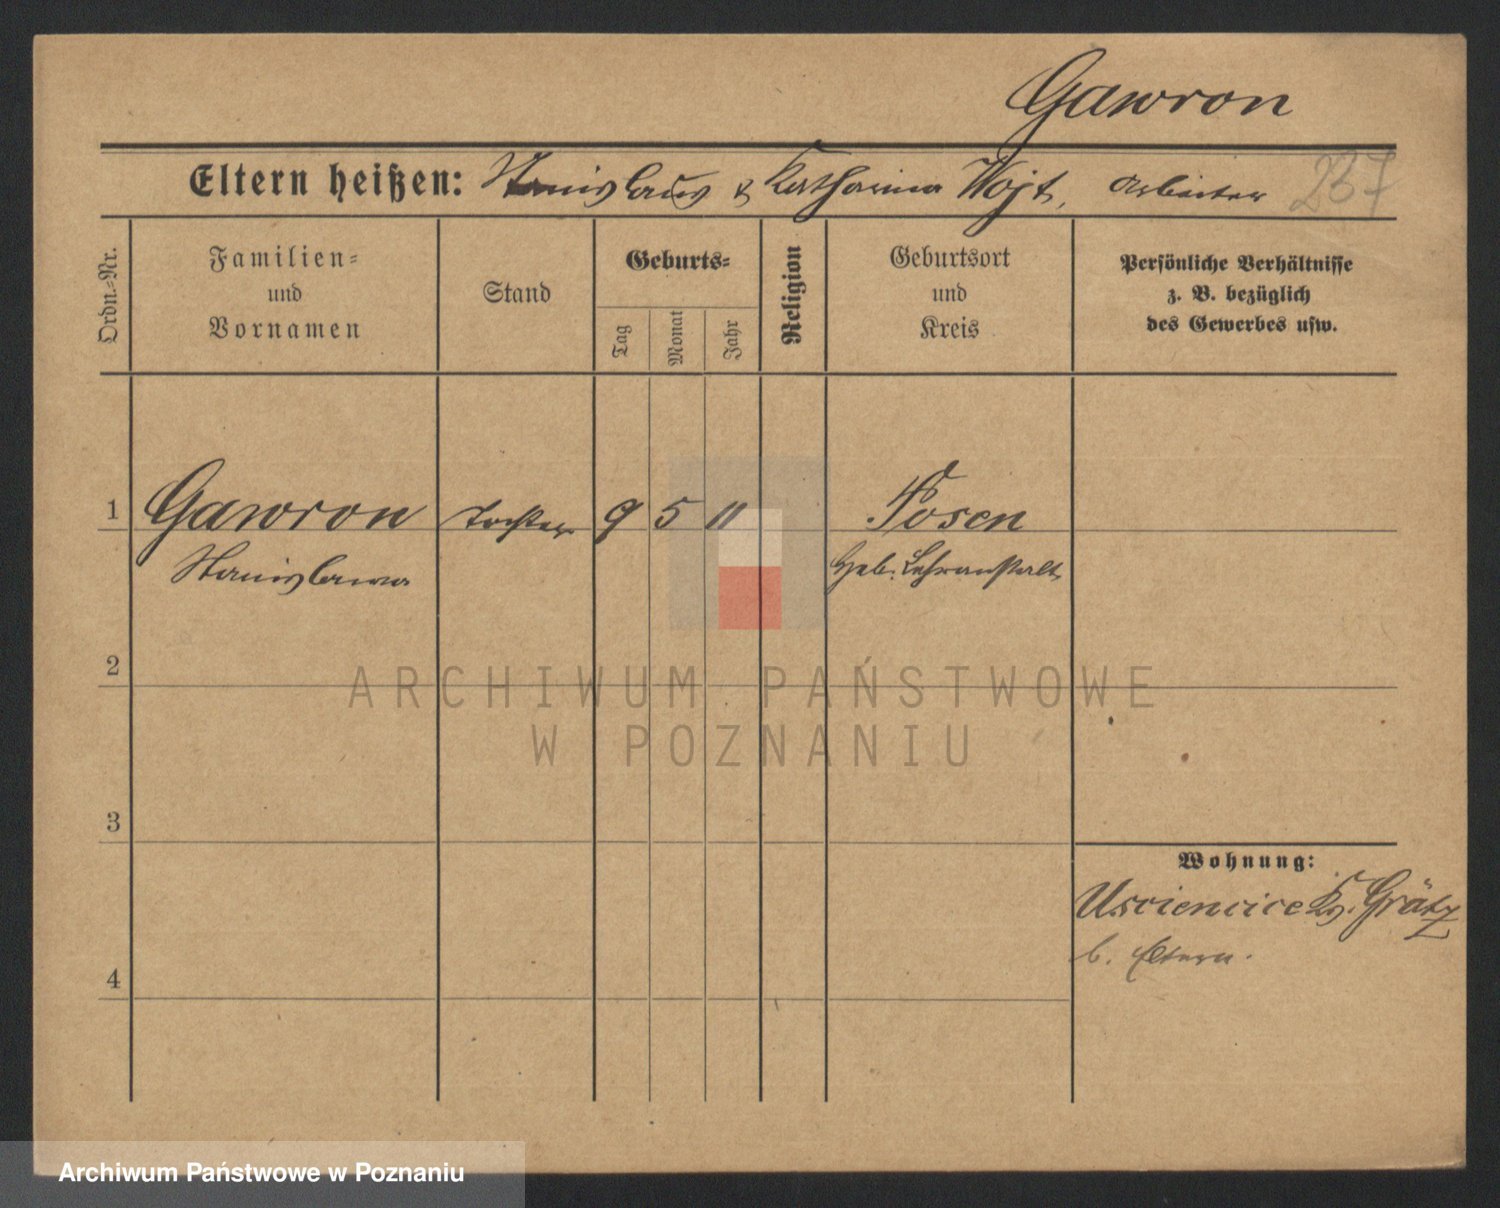 Gawron
Eltern heißen: Stanislaus & Katharina Wojt, Arbeiter 237
Ordn.-Nr.
Familien-
und
Vornamen
Stand
Geburts-
Tag
Monat
Jahr
Religion
Geburtsort
und
Kreis
Persönliche Verhältnisse
z. B. bezüglich
des Gewerbes usw.
1 Gawron Tochter 9 5 11 Posen
Stanislawa Heb. Lehranstalt
2
ARCHIWUM PAŃSTWOWE
W POZNANIU
3
Wohnung:
Usciencice Kr. Grätz
b. Eltern.
4
Archiwum Państwowe w Poznaniu